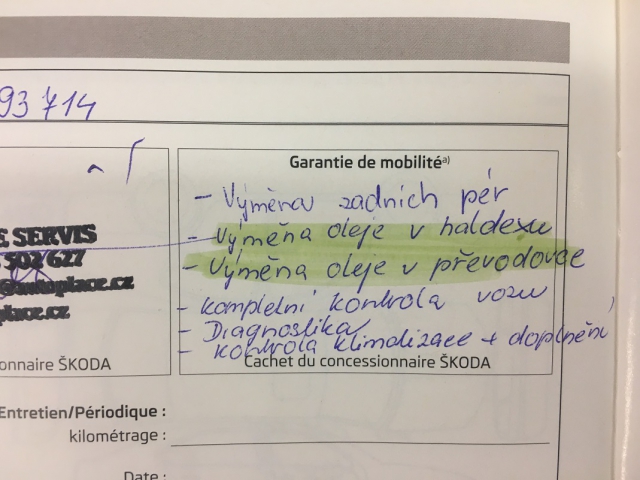 93 714
Garantie de mobilité a)
- Výměna zadních pér
- Výměna oleje v haldexu
- Výměna oleje v převodovce
- kompletní kontrola vozu
- Diagnostika
- kontrola klimatizace + doplnění
E SERVIS
502 627
@autoplace.cz
place.cz
onnaire ŠKODA
Cachet du concessionnaire ŠKODA
Entretien/Périodique :
kilométrage :
Date :